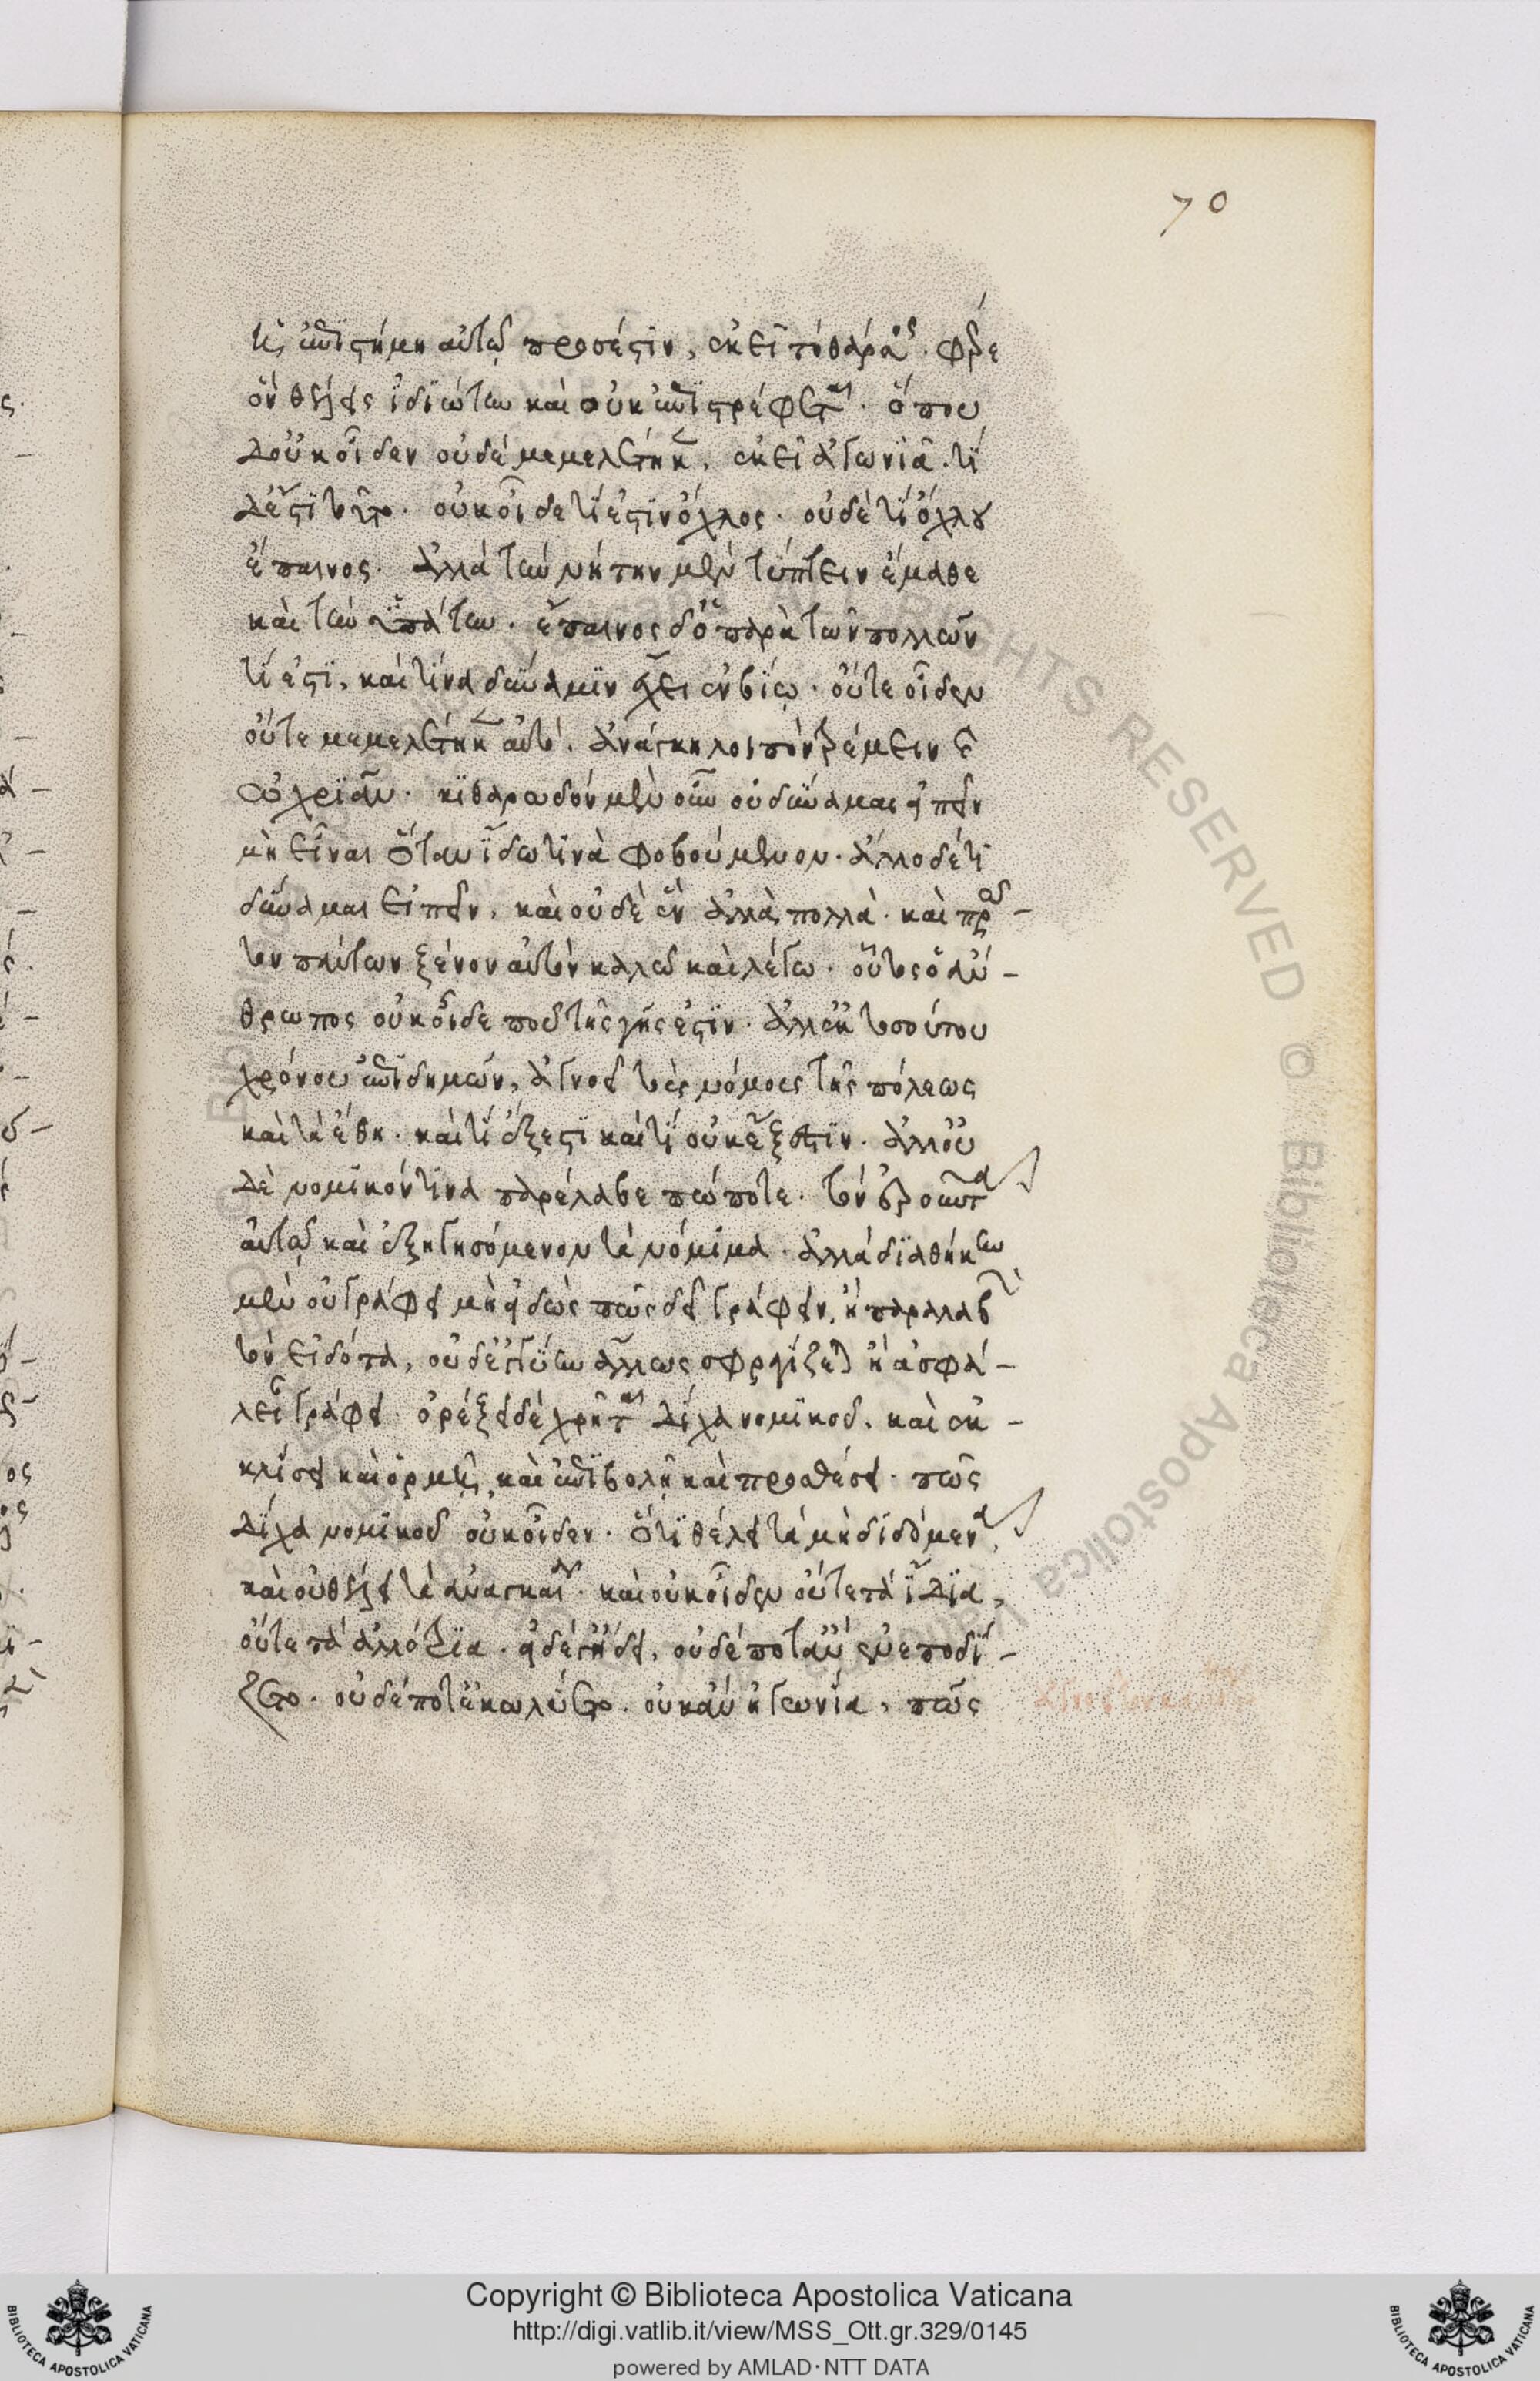 70
τίς ἐπιστήμη αὐτῷ πρόσεστιν, ἐκεῖ τὸ θάρσος. φέρε
ὃν θέλεις ἰδιώτην καὶ οὐκ ἐπιστρέφεται. ὅπου
δ' οὐκ οἶδεν οὐδὲ μεμελέτηκεν, ἐκεῖ ἀγωνιᾷ. τί
δ' ἔστι τοῦτο. οὐκ οἶδε τί ἐστιν ὄχλος. οὐδὲ τί ὄχλου
ἔπαινος. ἀλλὰ τὴν νήτην μὲν τύπτειν ἔμαθε
καὶ τὴν ὑπάτην. ἔπαινος δ' ὁ παρὰ τῶν πολλῶν
τί ἐστι, καὶ τίνα δύναμιν ἔχει ἐν βίῳ. οὔτε οἶδεν
οὔτε μεμελέτηκεν αὐτό. ἀνάγκη λοιπὸν τρέμειν καὶ
ὠχριᾶν. κιθαρῳδὸν μὲν οὖν οὐ δύναμαι εἰπεῖν
μὴ εἶναι ὅταν ἴδω τινὰ φοβούμενον. ἄλλο δέ τι
δύναμαι εἰπεῖν, καὶ οὐδὲ ἓν ἀλλὰ πολλά. καὶ πρῶ-
τον πάντων ξένον αὐτὸν καλῶ καὶ λέγω. οὗτος ὁ ἄν-
θρωπος οὐκ οἶδε ποῦ τῆς γῆς ἐστιν. ἀλλ' ἐκ τοσούτου
χρόνου ἐπιδημῶν, ἀγνοεῖ τοὺς νόμους τῆς πόλεως
καὶ τὰ ἔθη. καὶ τί ἔξεστι καὶ τί οὐκ ἔξεστιν. ἀλλ' οὐ
δὲ νομικόν τινα παρέλαβε πώποτε. τὸν ἐροῦντα
αὐτῷ καὶ ἐξηγησόμενον τὰ νόμιμα. ἀλλὰ διαθήκην
μὲν οὐ γράφει μὴ εἰδὼς πῶς δεῖ γράφειν, ἢ παραλαβὼν
τὸν εἰδότα, οὐδ' ἐγγύην ἄλλως σφραγίζεται ἢ ἀσφά-
λειαν γράφει. ὀρέξει δὲ χρῆται δίχα νομικοῦ. καὶ ἐκ-
κλίσει καὶ ὁρμῇ, καὶ ἐπιβολῇ καὶ προθέσει. πῶς
δίχα νομικοῦ οὐκ οἶδεν. ὅτι θέλει τὰ μὴ διδόμενα,
καὶ οὐ θέλει τὰ ἀναγκαῖα. καὶ οὐκ οἶδεν οὔτε τὰ ἴδια,
οὔτε τὰ ἀλλότρια. εἰ δέ γ' ᾔδει, οὐδέποτ' ἂν ἐνεποδί-
ζετο. οὐδέποτ' ἐκωλύετο. οὐκ ἂν ἠγωνία. πῶς
Copyright © Biblioteca Apostolica Vaticana
http://digi.vatlib.it/view/MSS_Ott.gr.329/0145
powered by AMLAD·NTT DATA